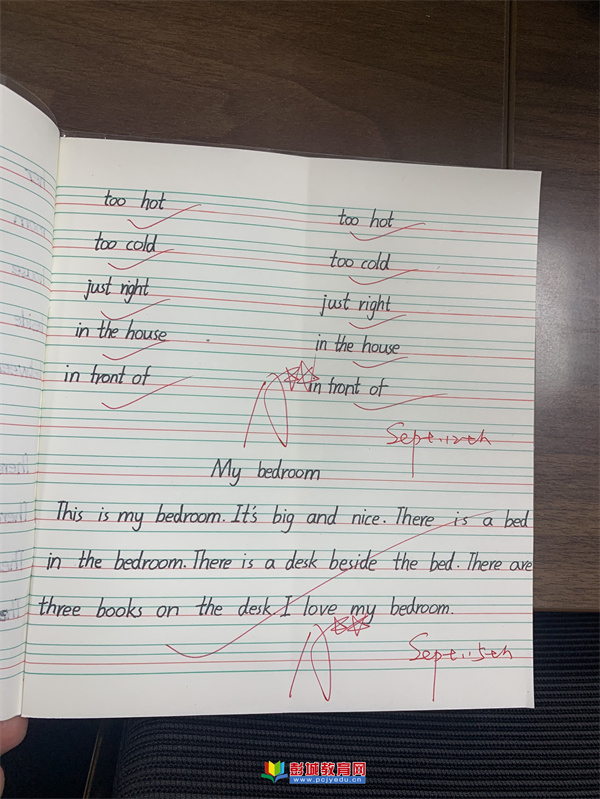 too hot
too cold
just right
in the house
in front of
too hot
too cold
just right
in the house
in front of
Sept. 12th
My bedroom
This is my bedroom. It's big and nice. There is a bed
in the bedroom. There is a desk beside the bed. There are
three books on the desk I love my bedroom.
Sept. 15th
彭城教育网
www.pcjyedu.cn